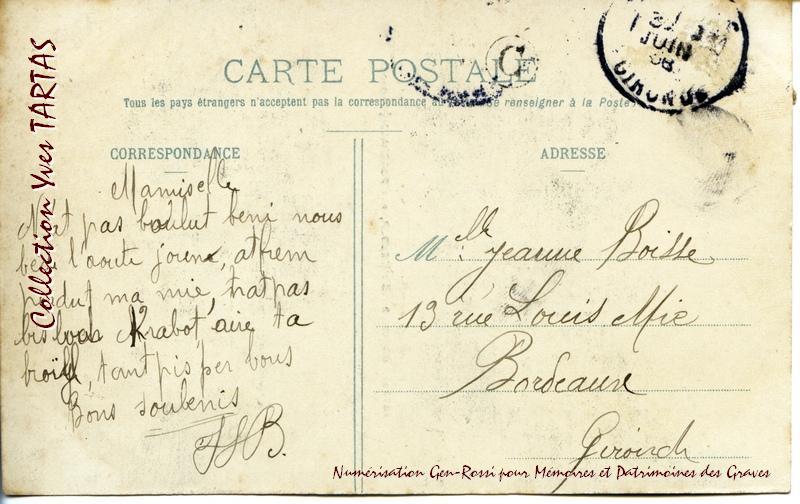 CARTE POSTALE
Tous les pays étrangers n'acceptent pas la correspondance au se renseigner à la Poste
CORRESPONDANCE
Mamiselle
N'at pas boulut beni nous
l'aoute journ,
ma mie, n'at pas
Krabot, aire ta
tant pis per bous
Bons soubenis
JSB.
ADRESSE
Mlle Jeanne Boisse
13 rue Louis Mie
Bordeaux
Gironde
JUIN
08
GIRONDE
G
Collection Yves TARTAS
Numérisation Gen-Rossi pour Mémoires et Patrimoines des Graves